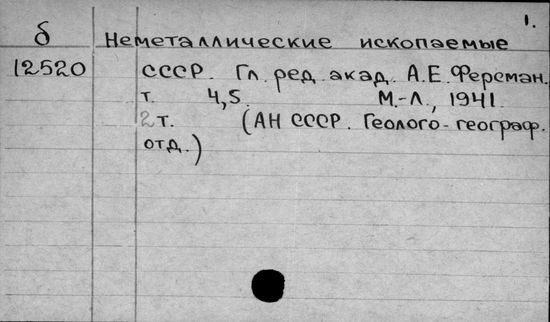 1.
б Неметаллические ископаемые
12520 СССР. Гл. ред. акад. А.Е. Ферсман.
т. 4,5. М.-Л., 1941.
2 т. (АН СССР. Геолого-географ.
отд.)